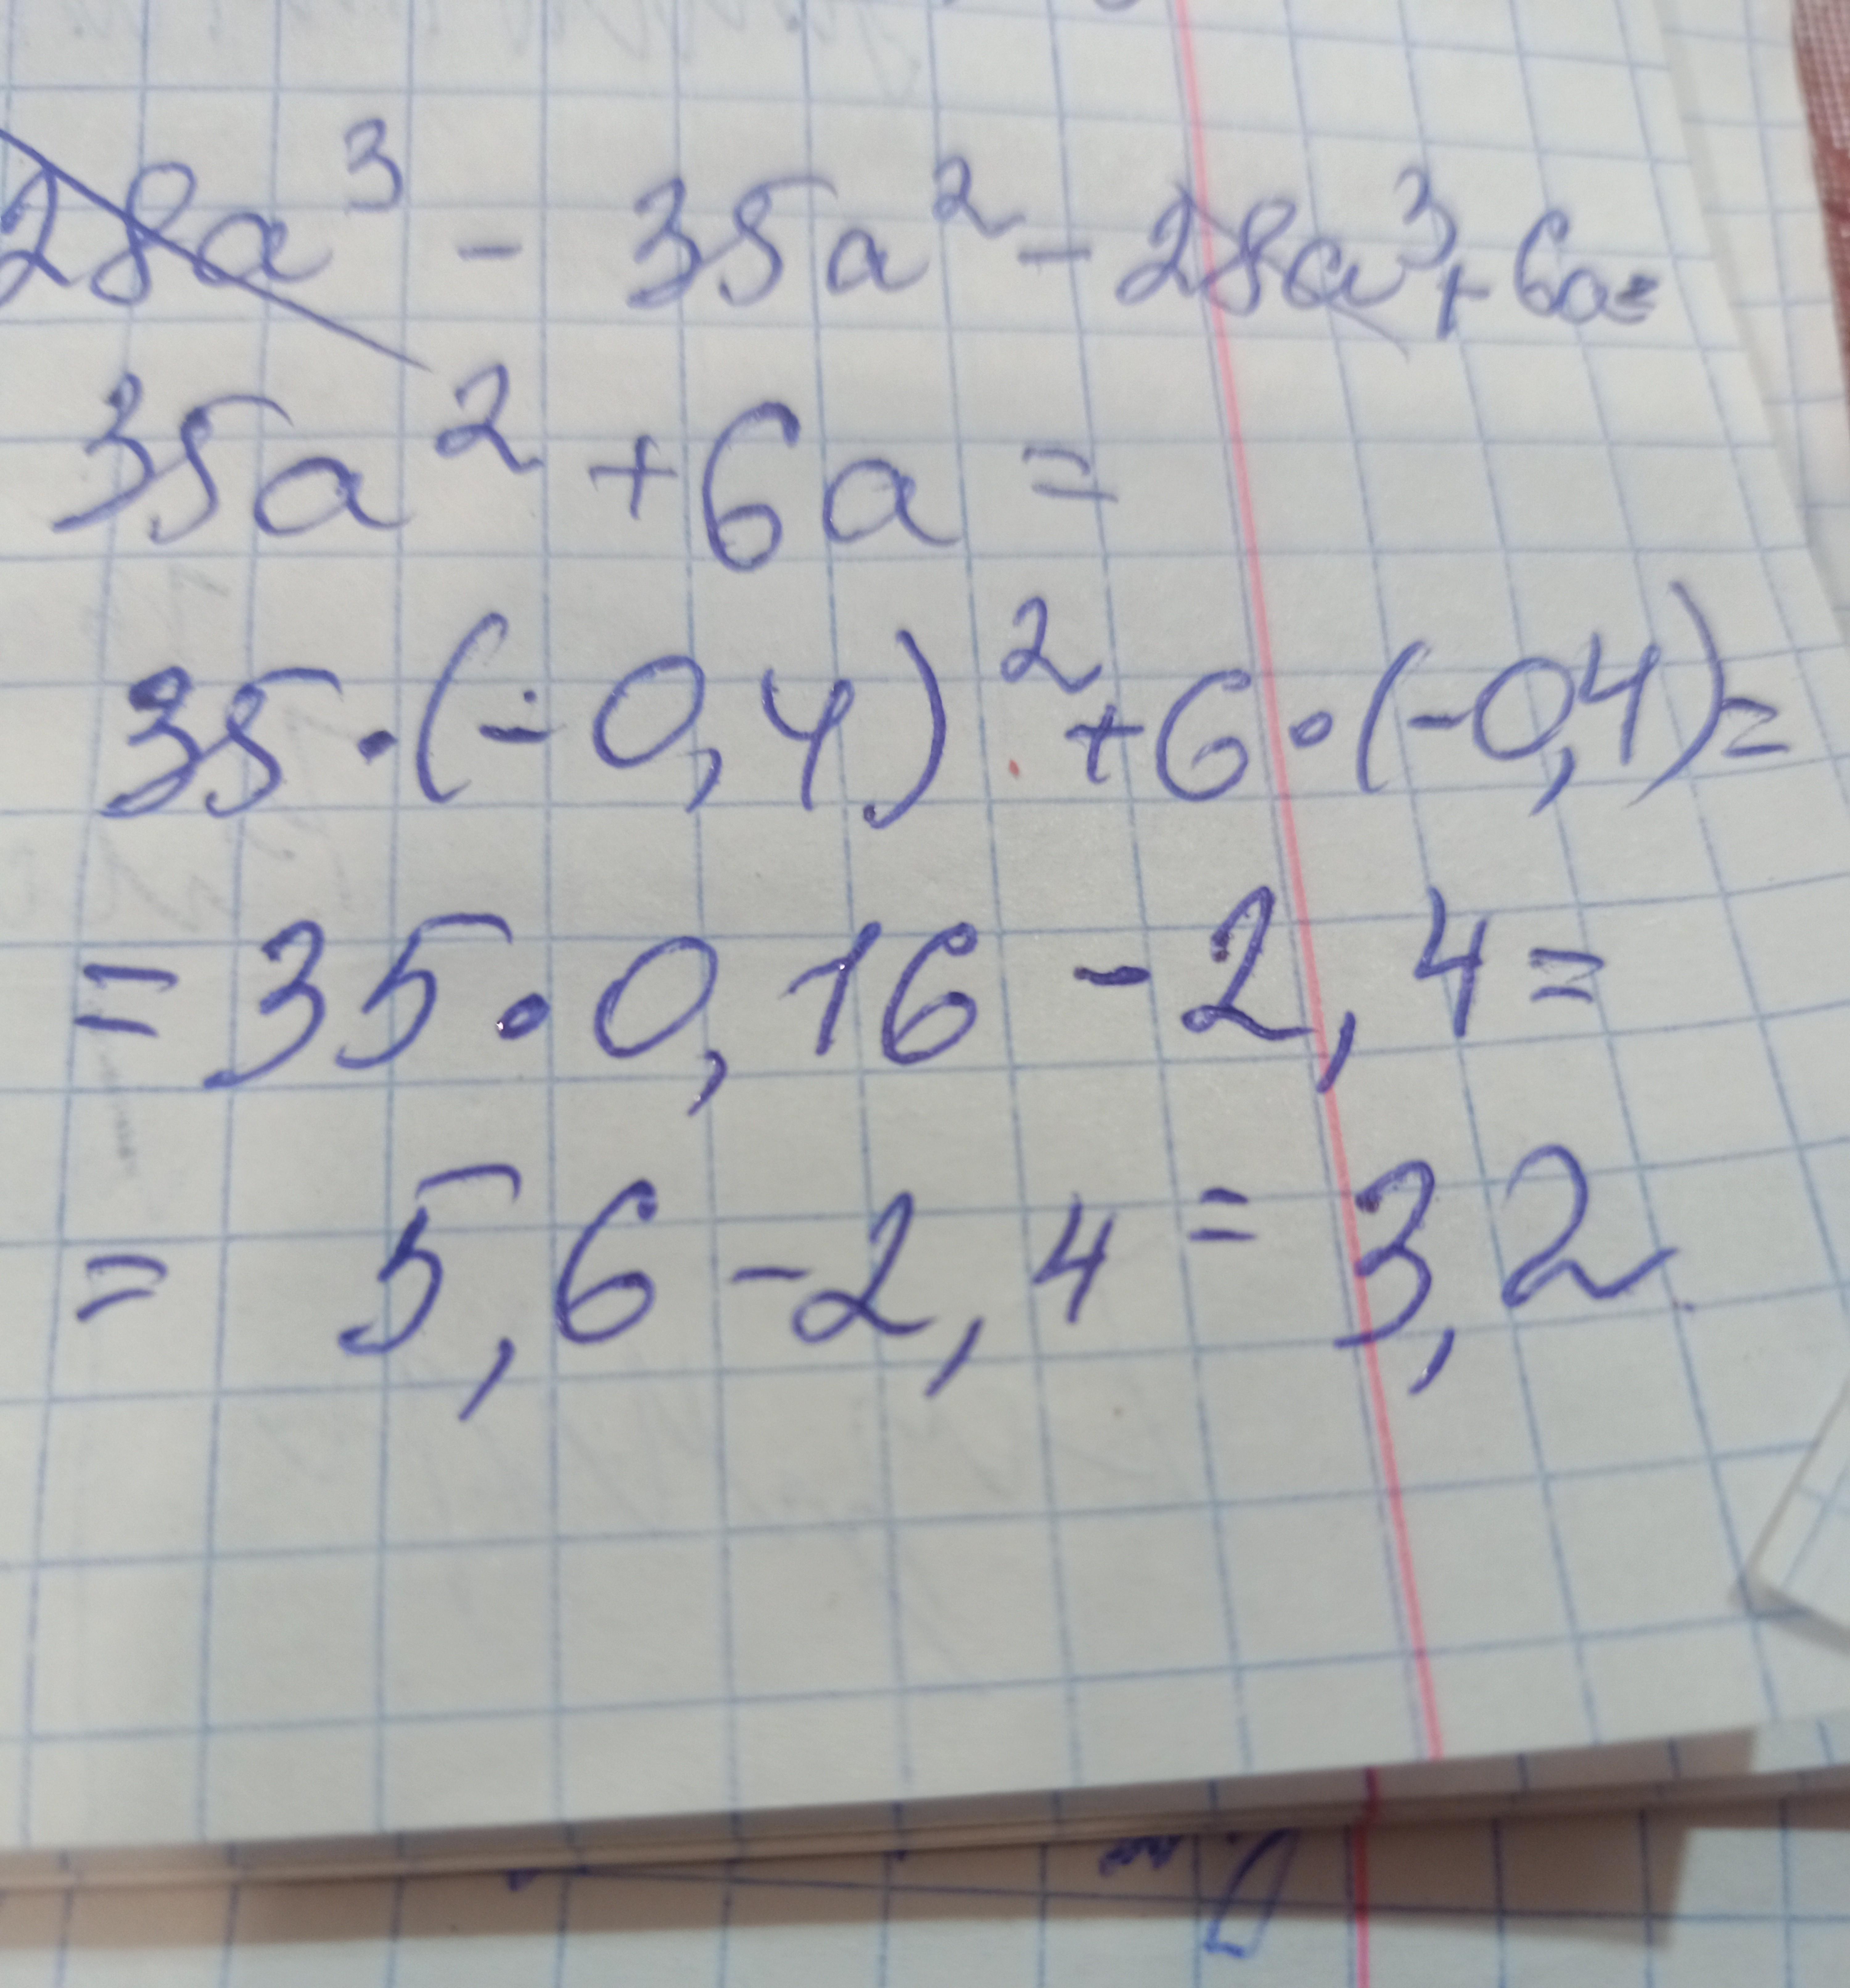 28a³ - 35a² - 28a³ + 6a =
35a² + 6a =
35 · (-0,4)² + 6 · (-0,4) =
= 35 · 0,16 - 2,4 =
= 5,6 - 2,4 = 3,2